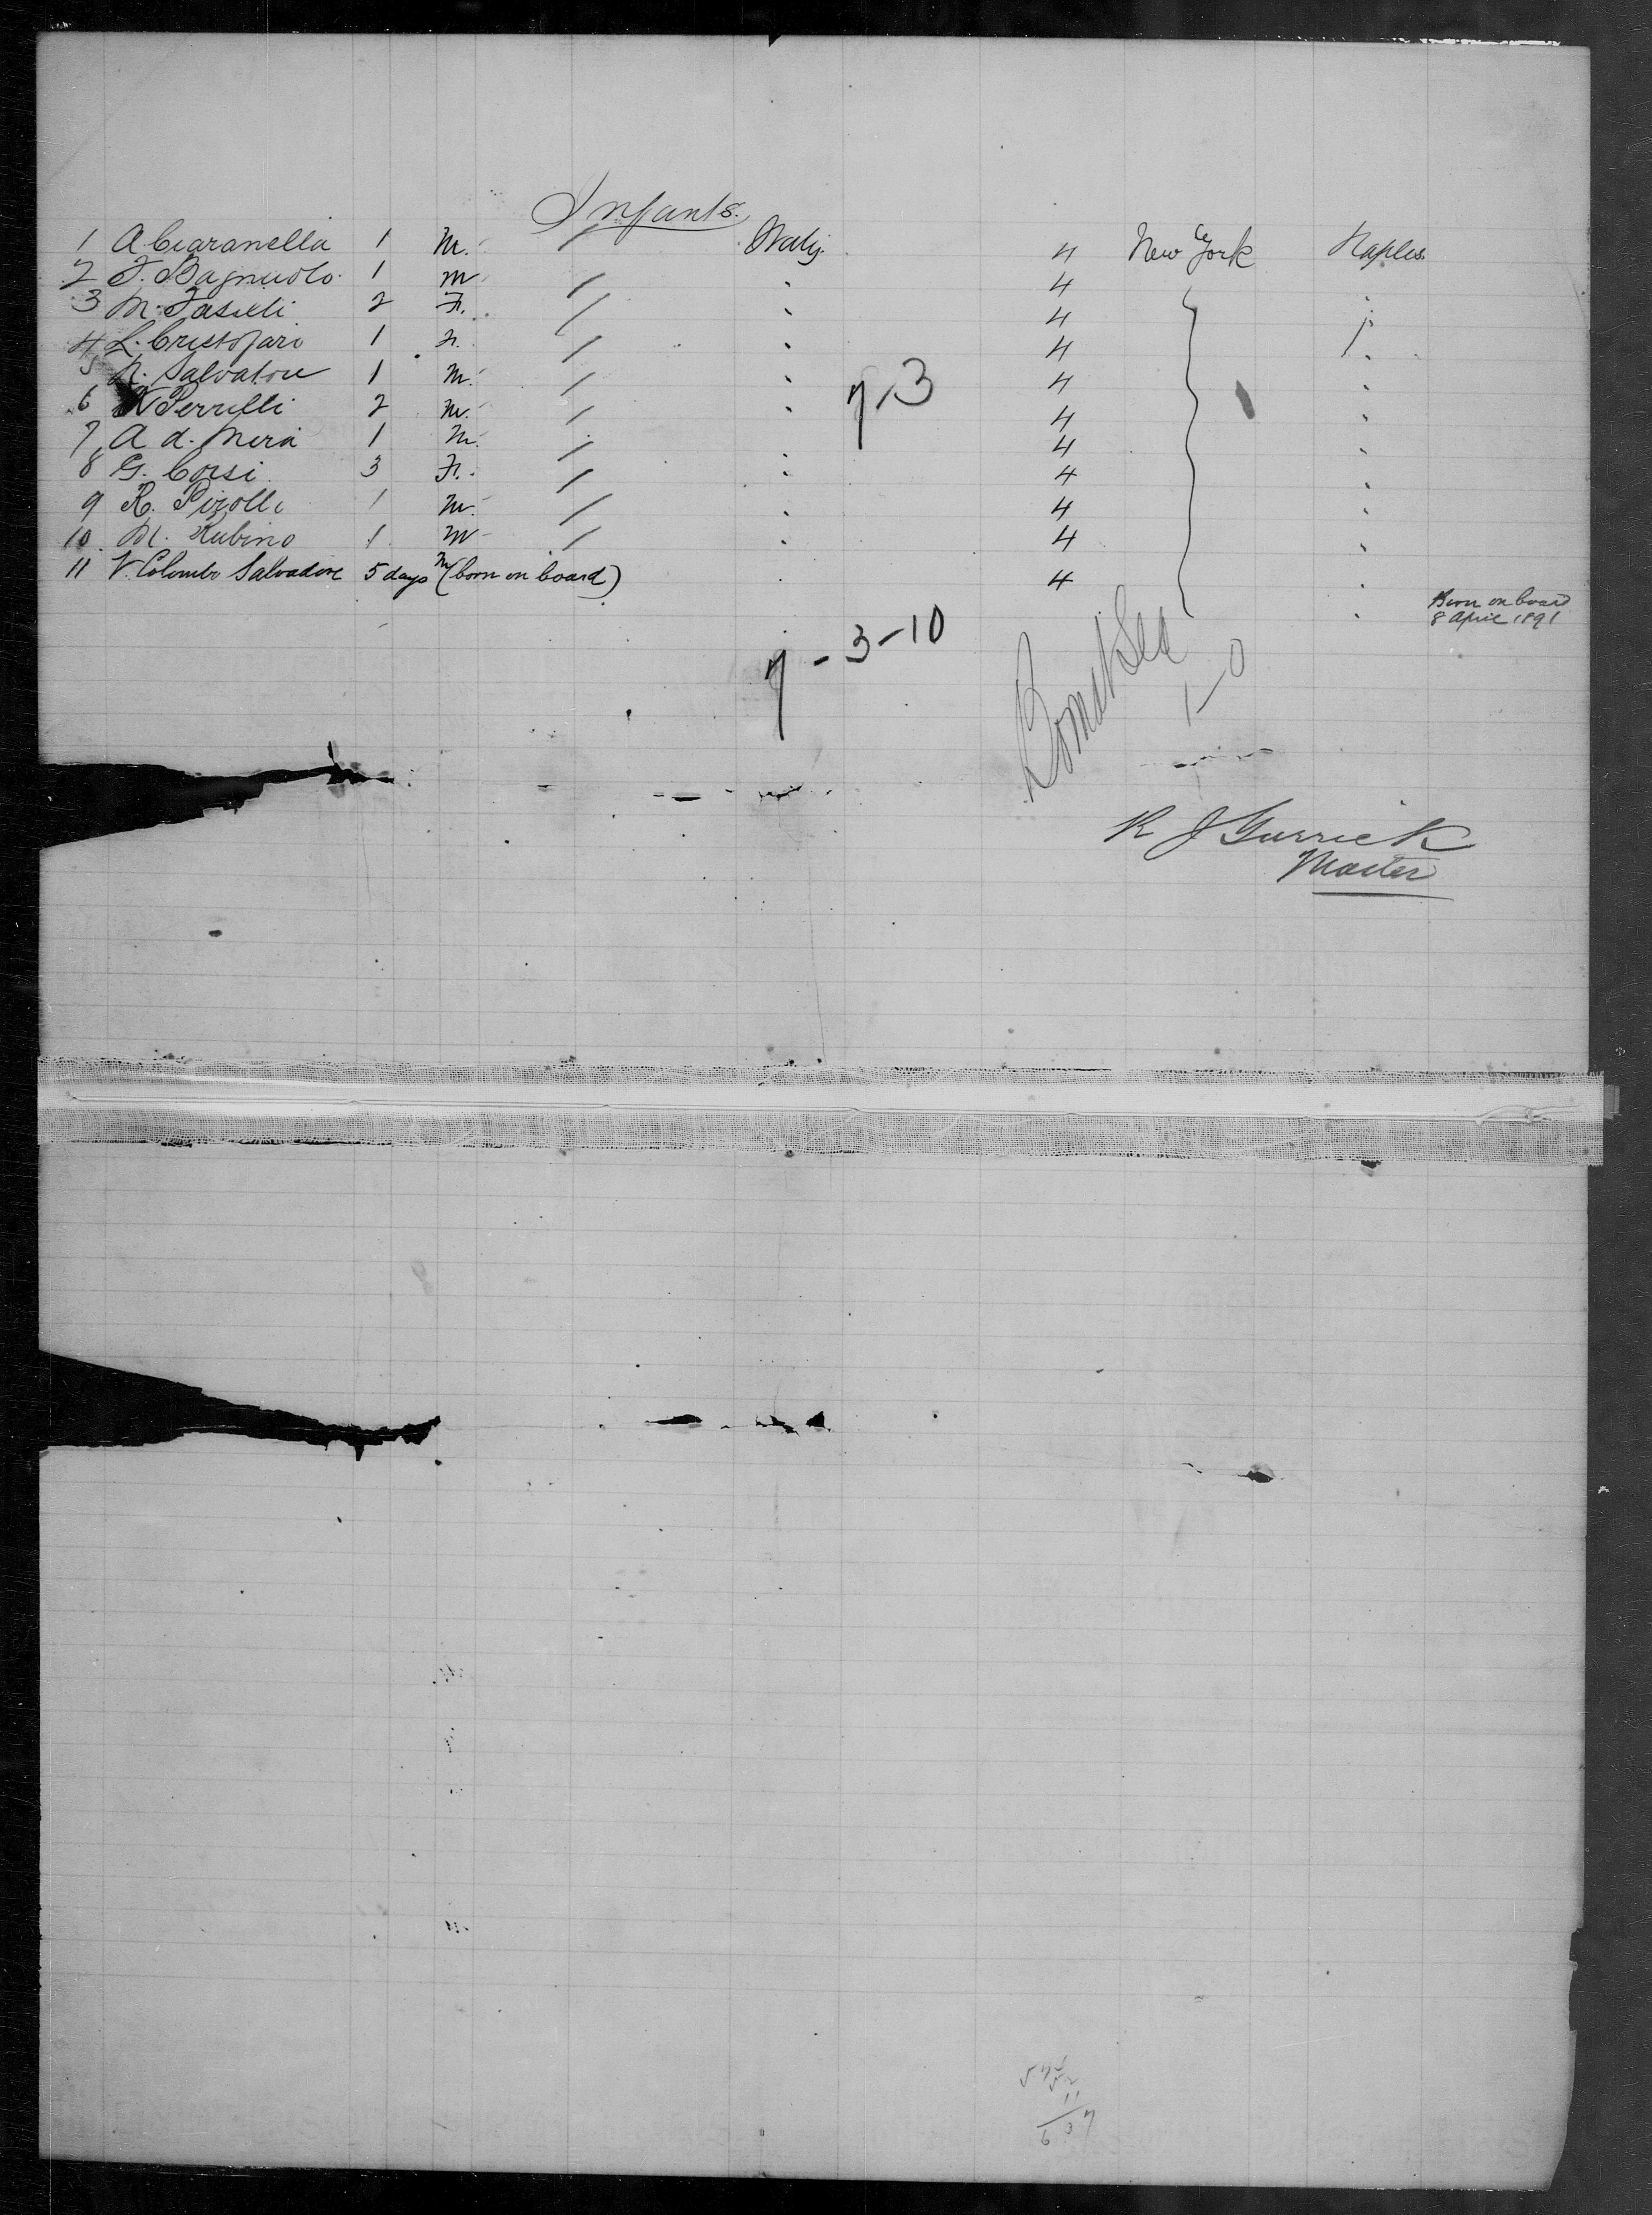 Infants.
1 A. Ciaranella 1 M. / Italy. 4 New York Naples.
2 F. Bagnuolo. 1 M / " 4 "
3 M. Faselli 2 F. / " 4 "
4 L. Cristofari 1 F. / " 4 "
5 N. Salvatore 1 M. / " 4 "
6 Perrelli 2 M. / " 4 "
7-3
7 A d. Mera 1 M. / " 4 "
8 G. Corsi 3 F. / " 4 "
9 R. Pirolli 1 M. / " 4 "
10 M. Rubino 1 M / " 4 "
11 V. Colombo Salvadore 5 days M (born on board) " 4 "
Born on board
8 April 1891
7-3-10
Born at Sea
1-0
R J Gurrick
Master
11
637